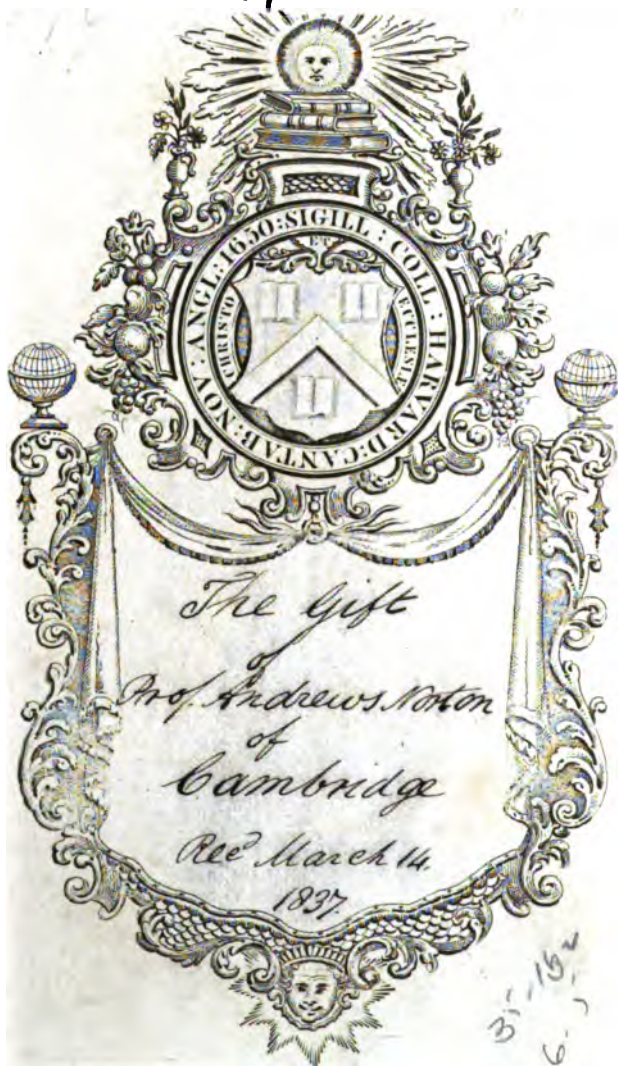 SIGILL : COLL : HARVARD : CANTAB : NOV : ANGL : 1650 :
CHRISTO ET ECCLESIÆ
The Gift
of
Prof. Andrews Norton
of
Cambridge
Rec.d March 14.
1837.